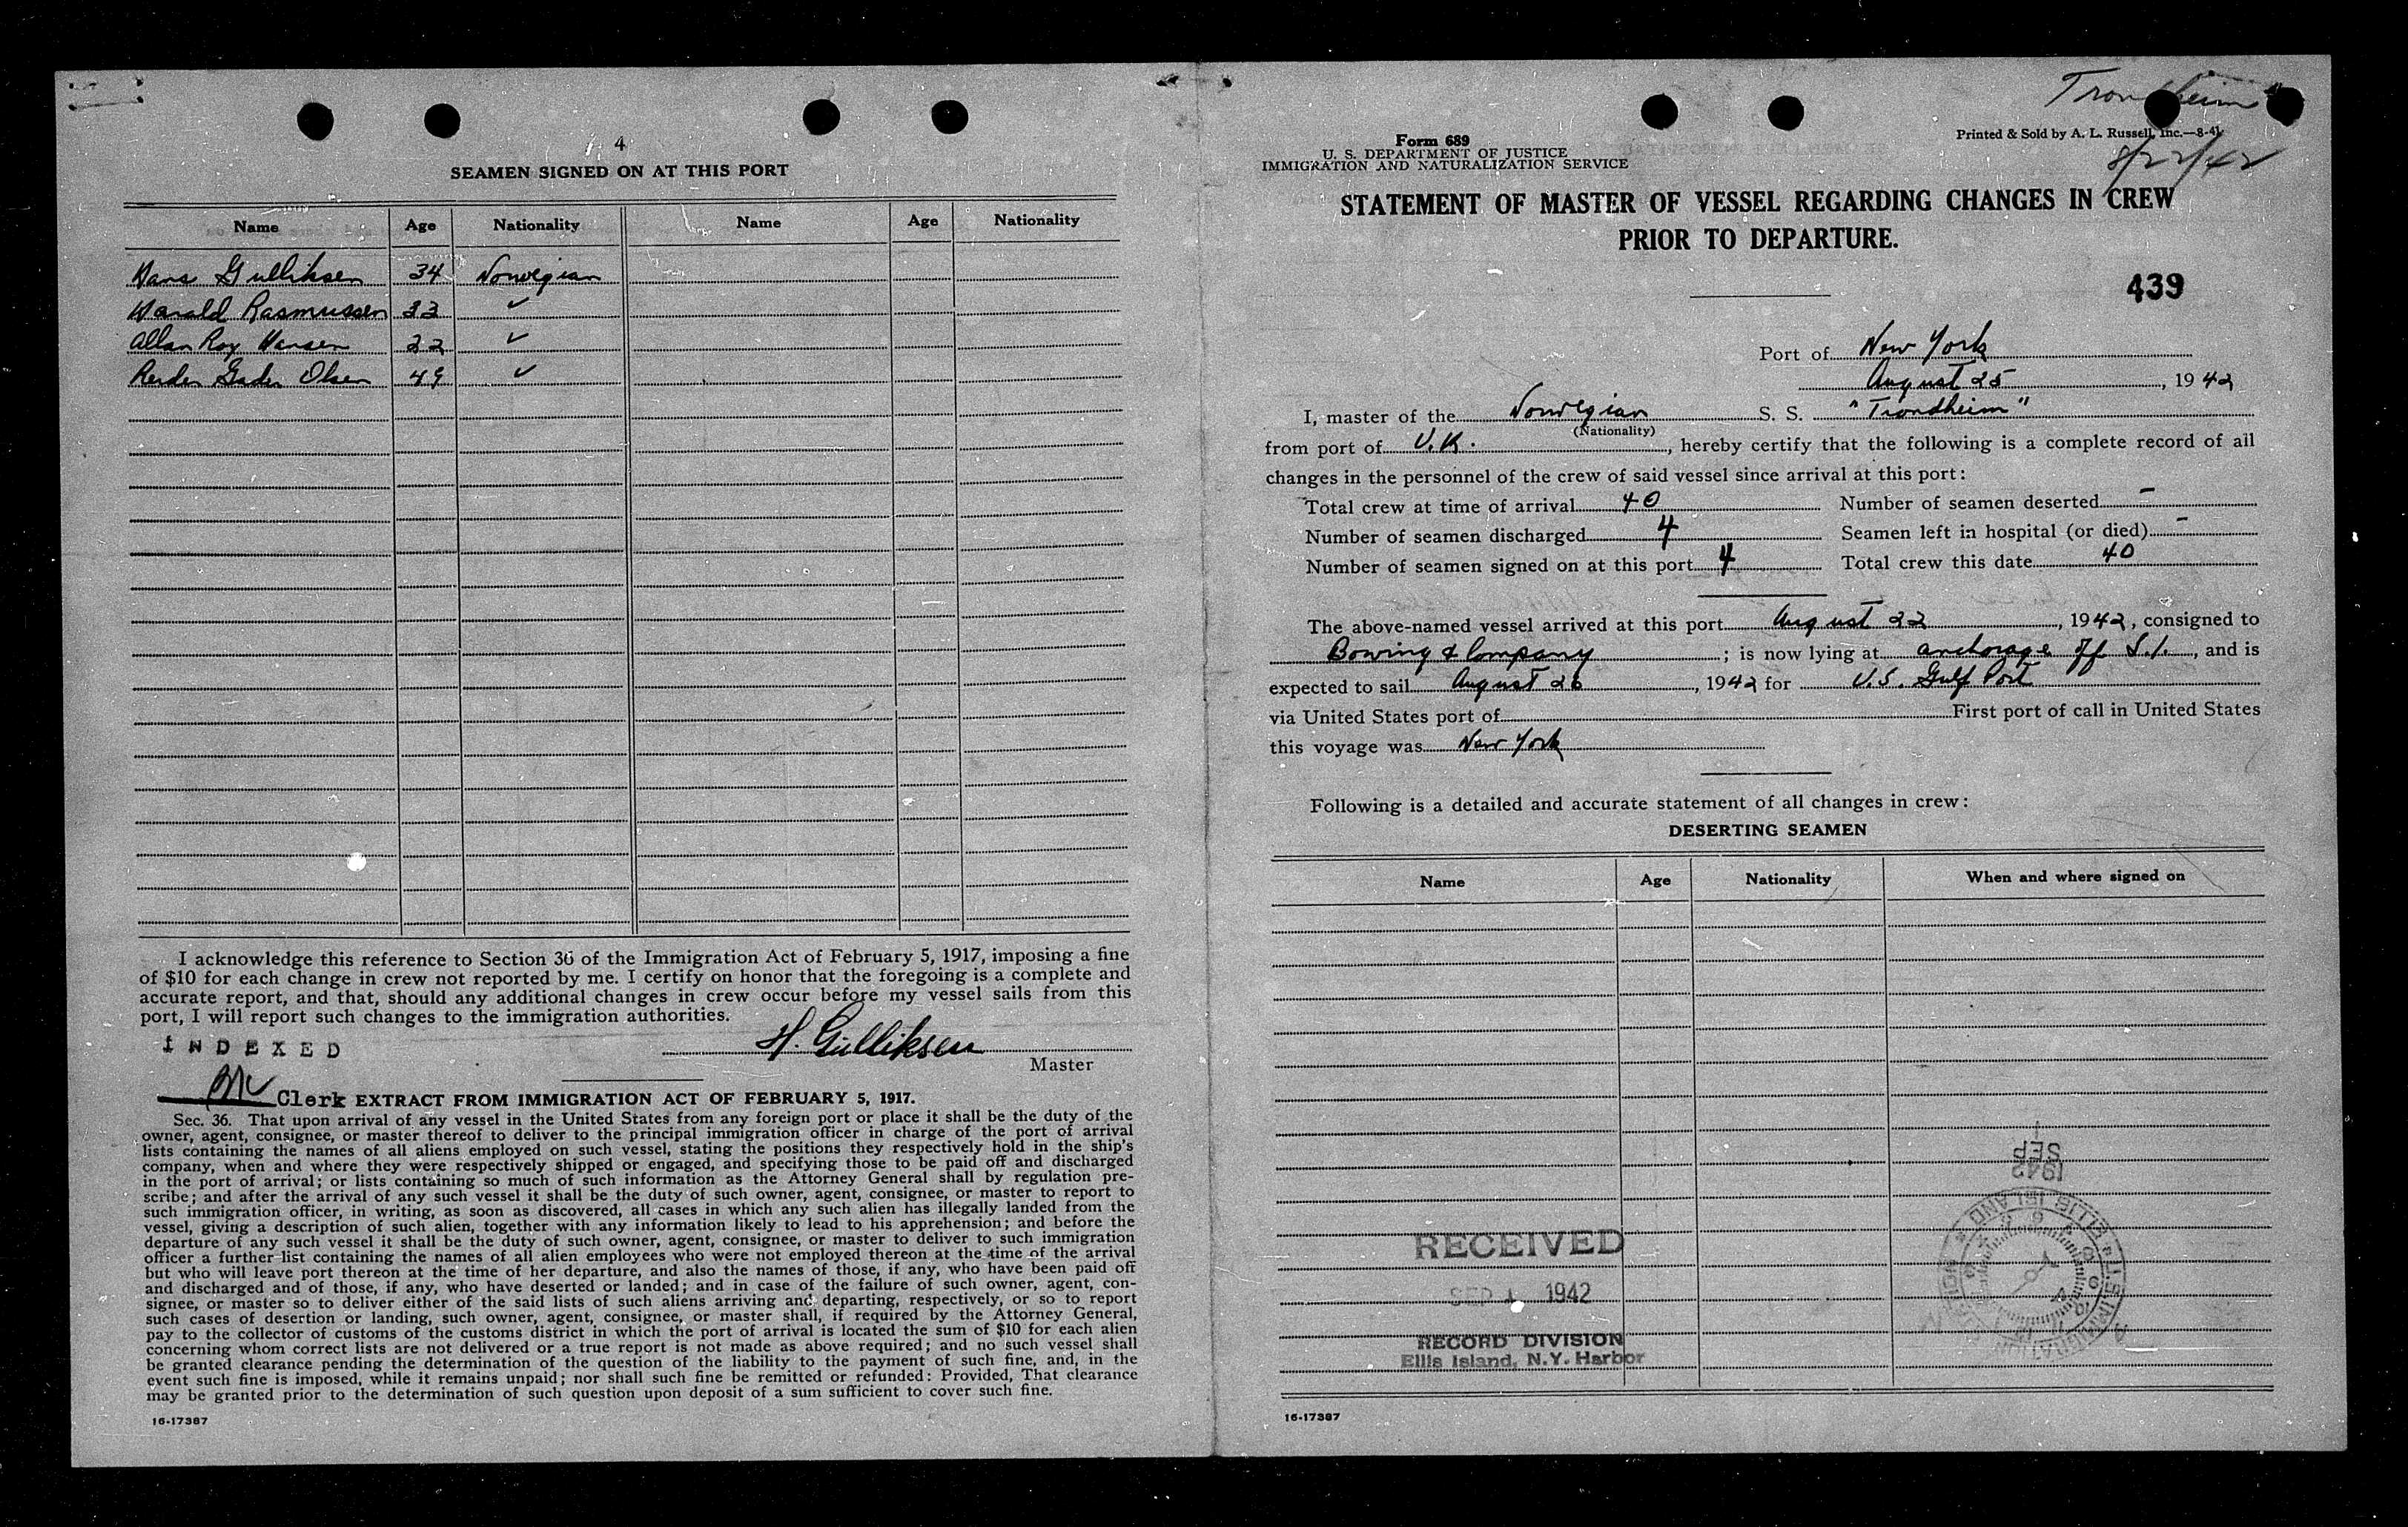 4
SEAMEN SIGNED ON AT THIS PORT
Name Age Nationality Name Age Nationality
Hans Gulliksen 34 Norwegian
Harald Rasmussen 33 ✓
Allan Roy Hansen 22 ✓
Olsen 49 ✓
I acknowledge this reference to Section 36 of the Immigration Act of February 5, 1917, imposing a fine
of $10 for each change in crew not reported by me. I certify on honor that the foregoing is a complete and
accurate report, and that, should any additional changes in crew occur before my vessel sails from this
port, I will report such changes to the immigration authorities.
INDEXED
H. Gulliksen
Master
Clerk EXTRACT FROM IMMIGRATION ACT OF FEBRUARY 5, 1917.
Sec. 36. That upon arrival of any vessel in the United States from any foreign port or place it shall be the duty of the
owner, agent, consignee, or master thereof to deliver to the principal immigration officer in charge of the port of arrival
lists containing the names of all aliens employed on such vessel, stating the positions they respectively hold in the ship's
company, when and where they were respectively shipped or engaged, and specifying those to be paid off and discharged
in the port of arrival; or lists containing so much of such information as the Attorney General shall by regulation pre-
scribe; and after the arrival of any such vessel it shall be the duty of such owner, agent, consignee, or master to report to
such immigration officer, in writing, as soon as discovered, all cases in which any such alien has illegally landed from the
vessel, giving a description of such alien, together with any information likely to lead to his apprehension; and before the
departure of any such vessel it shall be the duty of such owner, agent, consignee, or master to deliver to such immigration
officer a further list containing the names of all alien employees who were not employed thereon at the time of the arrival
but who will leave port thereon at the time of her departure, and also the names of those, if any, who have been paid off
and discharged and of those, if any, who have deserted or landed; and in case of the failure of such owner, agent, con-
signee, or master so to deliver either of the said lists of such aliens arriving and departing, respectively, or so to report
such cases of desertion or landing, such owner, agent, consignee, or master shall, if required by the Attorney General,
pay to the collector of customs of the customs district in which the port of arrival is located the sum of $10 for each alien
concerning whom correct lists are not delivered or a true report is not made as above required; and no such vessel shall
be granted clearance pending the determination of the question of the liability to the payment of such fine, and, in the
event such fine is imposed, while it remains unpaid; nor shall such fine be remitted or refunded: Provided, That clearance
may be granted prior to the determination of such question upon deposit of a sum sufficient to cover such fine.
16-17387
Trondheim
Form 689
U. S. DEPARTMENT OF JUSTICE
IMMIGRATION AND NATURALIZATION SERVICE
Printed & Sold by A. L. Russell, Inc.—8-41
8/22/42
STATEMENT OF MASTER OF VESSEL REGARDING CHANGES IN CREW
PRIOR TO DEPARTURE.
439
Port of New York
August 25, 1942
I, master of the Norwegian S. S. "Trondheim"
(Nationality)
from port of U.K., hereby certify that the following is a complete record of all
changes in the personnel of the crew of said vessel since arrival at this port:
Total crew at time of arrival 40 Number of seamen deserted -
Number of seamen discharged 4 Seamen left in hospital (or died) -
Number of seamen signed on at this port 4 Total crew this date 40
The above-named vessel arrived at this port August 22, 1942, consigned to
Bowring & Company; is now lying at anchorage off S.I., and is
expected to sail August 26, 1942 for U.S. Gulf Port
via United States port of First port of call in United States
this voyage was New York
Following is a detailed and accurate statement of all changes in crew:
DESERTING SEAMEN
Name Age Nationality When and where signed on
1942
SEP
1
RECEIVED
SEP 1 1942
RECORD DIVISION
Ellis Island, N.Y. Harbor
ELLIS ISLAND
U.S. IMMIGRATION
16-17387